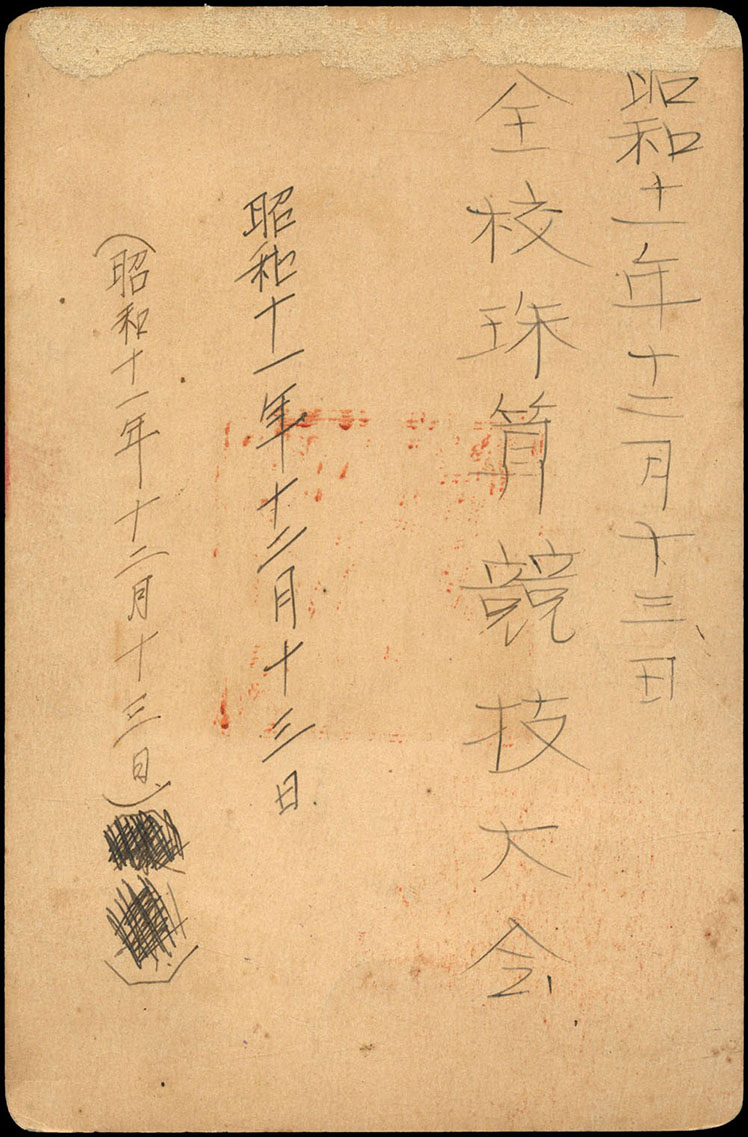 昭和十一年十二月十三日
全校珠算競技大会
昭和十一年十二月十三日
(昭和十一年十二月十三日)